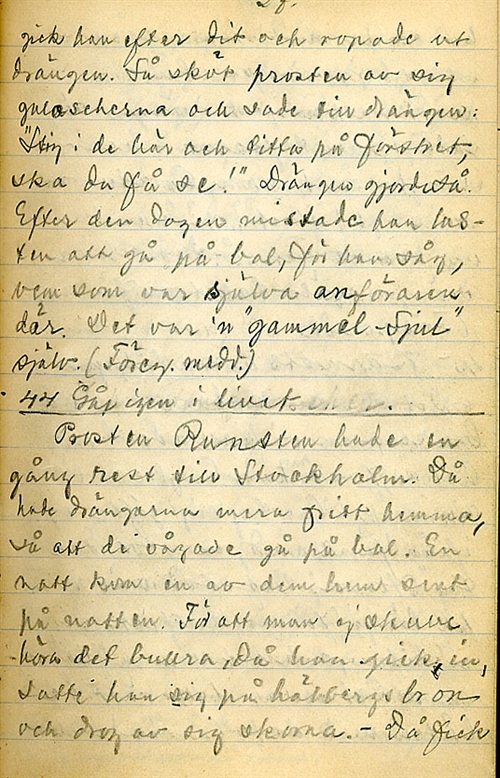 28.
gick han efter dit och ropade ut
drängen. Så sköt prosten av sig
galoscherna och sade till drängen:
"Stig i de här och titta på fönstret,
ska du få se!" Drängen gjorde så.
Efter den dagen mistade han lus-
ten att gå på bal, för han såg,
vem som var själva anföraren
där. Det var 'n "gammel-Sjul"
själv. (Föreg. medd.)
44 Gåg igen i livet
Prosten Runsten hade en
gång rest till Stockholm. Då
hade drängarna mera fritt hemma,
så att de vågade gå på bal. En
natt kom en av dem hem sent
på natten. För att man ej skulle
höra det bullra, då han gick in,
satte han sig på häbbergsbron
och drog av sig skorna. - Då fick